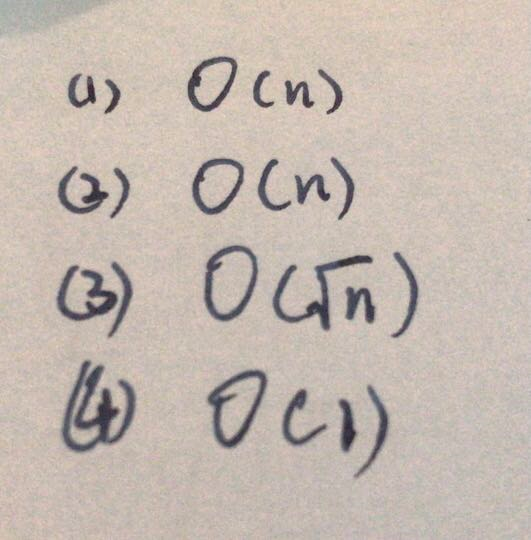 (1) O(n)
(2) O(n)
(3) O(√n)
(4) O(1)